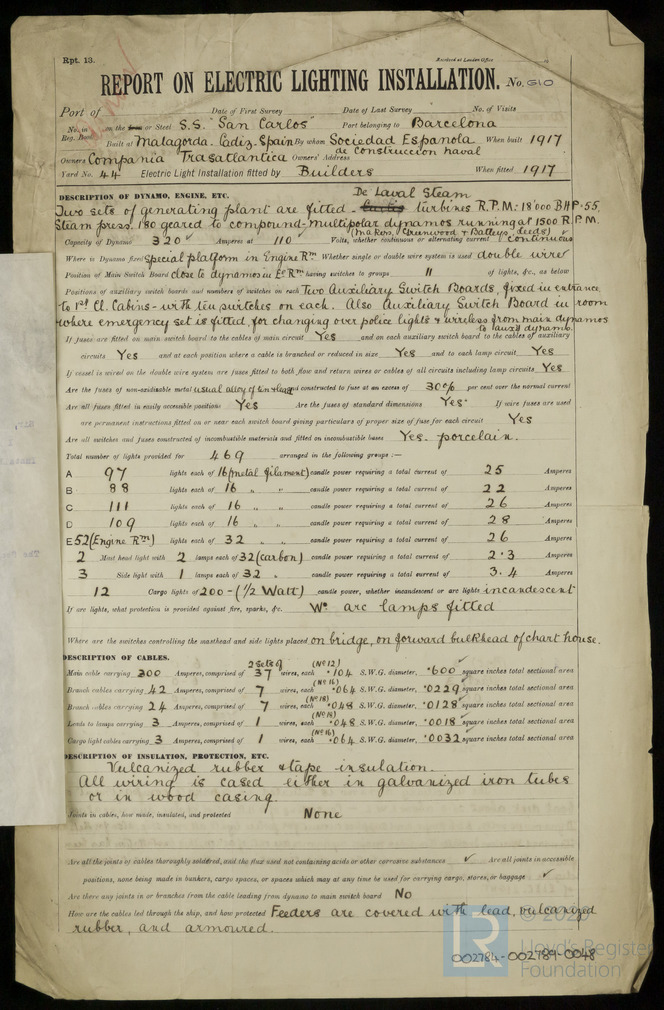 Rpt. 13.
Received at London Office
REPORT ON ELECTRIC LIGHTING INSTALLATION. No. 610
Port of Date of First Survey Date of Last Survey No. of Visits
No. in Reg. Book on the Iron or Steel S.S. "San Carlos" Port belonging to Barcelona
Built at Matagorda. Cadiz. Spain By whom Sociedad Espanola de construccion naval When built 1917
Owners Compania Trasatlantica Owners' Address
Yard No. 44 Electric Light Installation fitted by Builders When fitted 1917
DESCRIPTION OF DYNAMO, ENGINE, ETC.
Two sets of generating plant are fitted - Curtis De Laval Steam turbines R.P.M. 18'000 BHP. 55.
Steam press. 180 geared to compound-multipolar dynamos running at 1500 R.P.M.
(Makers, Greenwood & Batleys, Leeds)
Capacity of Dynamo 320 Amperes at 110 Volts, whether continuous or alternating current continuous
Where is Dynamo fixed Special platform in Engine Rm Whether single or double wire system is used double wire
Position of Main Switch Board close to dynamos in E. Rm having switches to groups 11 of lights, &c., as below
Positions of auxiliary switch boards and numbers of switches on each Two Auxiliary Switch Boards, fixed in entrance
to 1st Cl. Cabins - with ten switches on each. Also Auxiliary Switch Board in room
where emergency set is fitted, for changing over police lights & wireless from main dynamos
to auxil dynamo.
If fuses are fitted on main switch board to the cables of main circuit Yes and on each auxiliary switch board to the cables of auxiliary
circuits Yes and at each position where a cable is branched or reduced in size Yes and to each lamp circuit Yes
If vessel is wired on the double wire system are fuses fitted to both flow and return wires or cables of all circuits including lamp circuits Yes
Are the fuses of non-oxidizable metal usual alloy of tin & lead and constructed to fuse at an excess of 30% per cent over the normal current
Are all fuses fitted in easily accessible positions Yes Are the fuses of standard dimensions Yes. If wire fuses are used
are permanent instructions fitted on or near each switch board giving particulars of proper size of fuse for each circuit Yes
Are all switches and fuses constructed of incombustible materials and fitted on incombustible bases Yes. porcelain.
Total number of lights provided for 469 arranged in the following groups :—
A 97 lights each of 16 (metal filament) candle power requiring a total current of 25 Amperes
B 88 lights each of 16 " " candle power requiring a total current of 22 Amperes
C 111 lights each of 16 " " candle power requiring a total current of 26 Amperes
D 109 lights each of 16 " " candle power requiring a total current of 28 Amperes
E 52 (Engine Rm) lights each of 32 " " candle power requiring a total current of 26 Amperes
2 Mast head light with 2 lamps each of 32 (carbon) candle power requiring a total current of 2.3 Amperes
3 Side light with 1 lamps each of 32 " candle power requiring a total current of 3.4 Amperes
12 Cargo lights of 200 - (1/2 Watt) candle power, whether incandescent or arc lights incandescent
If arc lights, what protection is provided against fire, sparks, &c. No arc lamps fitted
Where are the switches controlling the masthead and side lights placed on bridge, on forward bulkhead of chart house.
DESCRIPTION OF CABLES.
Main cable carrying 300 Amperes, comprised of 2 sets of 37 wires, each (No 12) .104 S.W.G. diameter, .600 square inches total sectional area
Branch cables carrying 42 Amperes, comprised of 7 wires, each (No 16) .064 S.W.G. diameter, .0229 square inches total sectional area
Branch cables carrying 24 Amperes, comprised of 7 wires, each (No 18) .048 S.W.G. diameter, .0128 square inches total sectional area
Leads to lamps carrying 3 Amperes, comprised of 1 wires, each (No 18) .048 S.W.G. diameter, .0018 square inches total sectional area
Cargo light cables carrying 3 Amperes, comprised of 1 wires, each (No 16) .064 S.W.G. diameter, .0032 square inches total sectional area
DESCRIPTION OF INSULATION, PROTECTION, ETC.
Vulcanized rubber & tape insulation.
All wiring is cased either in galvanized iron tubes
or in wood casing.
Joints in cables, how made, insulated, and protected None
Are all the joints of cables thoroughly soldered, and the flux used not containing acids or other corrosive substances ✓ Are all joints in accessible
positions, none being made in bunkers, cargo spaces, or spaces which may at any time be used for carrying cargo, stores, or baggage ✓
Are there any joints in or branches from the cable leading from dynamo to main switch board No
How are the cables led through the ship, and how protected Feeders are covered with lead, vulcanized
rubber, and armoured.
LR
© 2020
Lloyd's Register
Foundation
002784-002789-0048